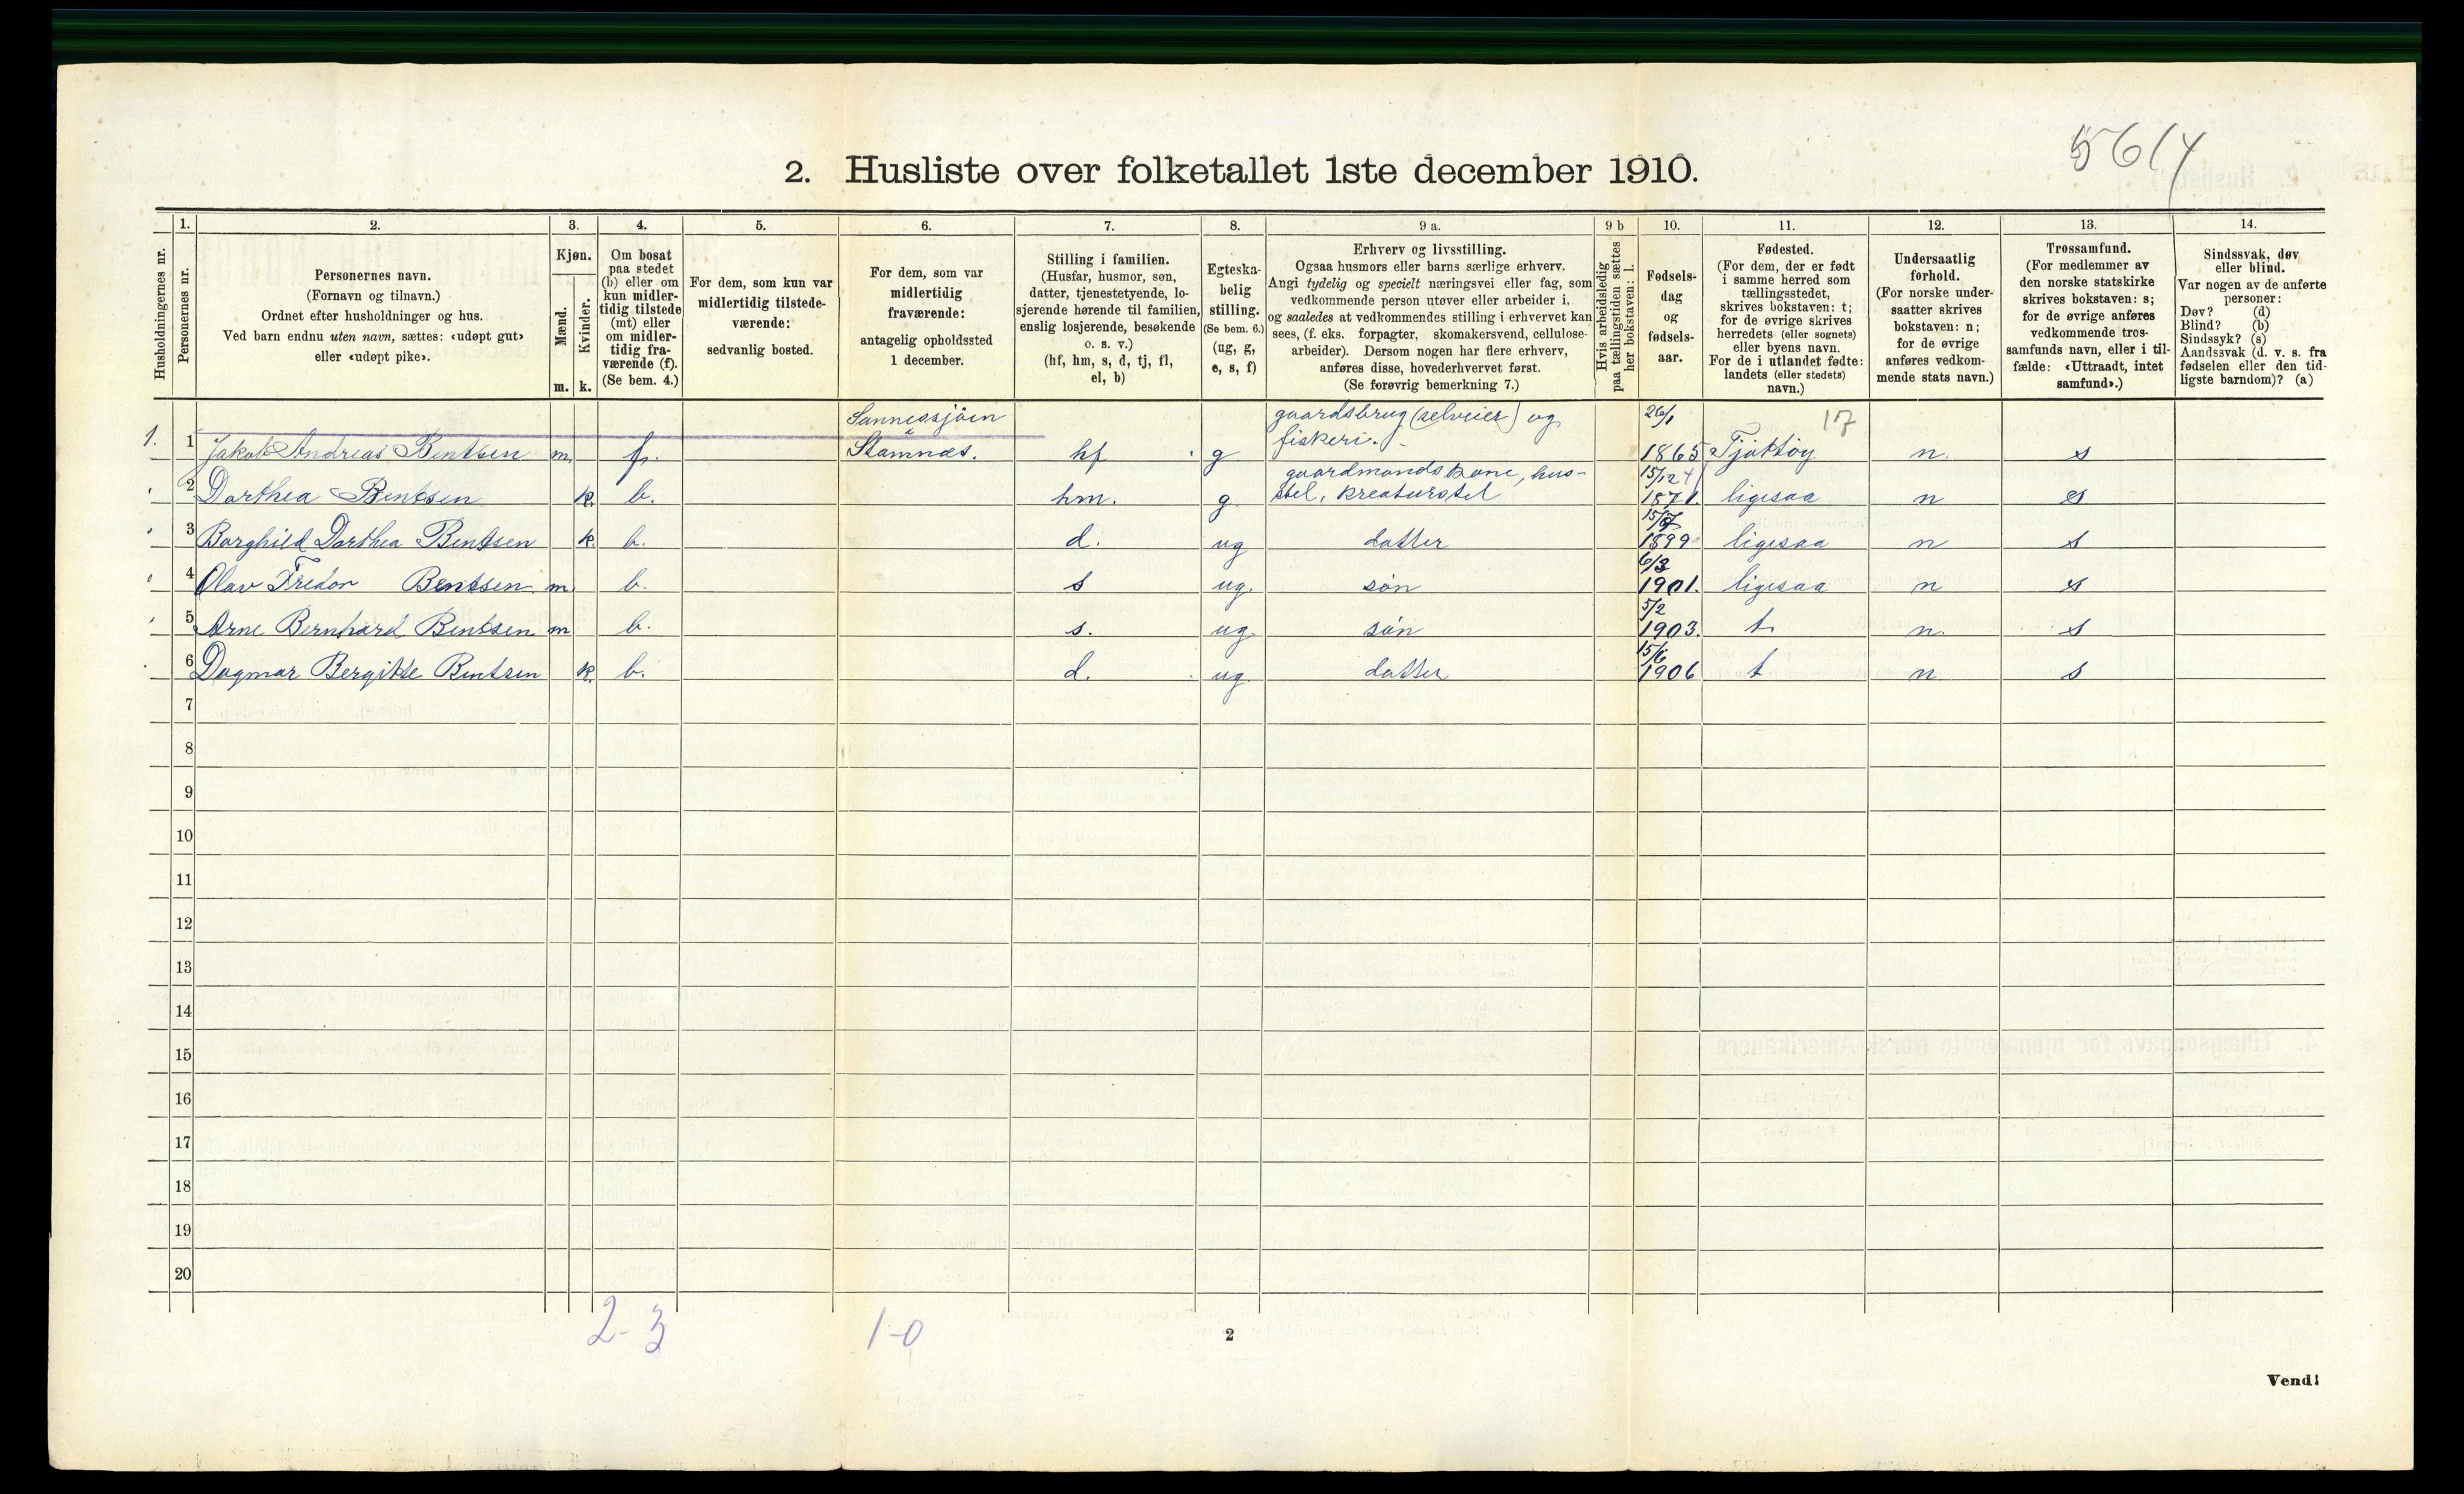 5614
2. Husliste over folketallet 1ste december 1910.
Husholdningernes nr.
1. Personernes nr.
2. Personernes navn.
(Fornavn og tilnavn.)
Ordnet efter husholdninger og hus.
Ved barn endnu uten navn, sættes: «udøpt gut»
eller «udøpt pike».
3. Kjøn.
Mænd. m.
Kvinder. k.
4. Om bosat
paa stedet
(b) eller om
kun midler-
tidig tilstede
(mt) eller
om midler-
tidig fra-
værende (f).
(Se bem. 4.)
5. For dem, som kun var
midlertidig tilstede-
værende:
sedvanlig bosted.
6. For dem, som var
midlertidig
fraværende:
antagelig opholdssted
1 december.
7. Stilling i familien.
(Husfar, husmor, søn,
datter, tjenestetyende, lo-
sjerende hørende til familien,
enslig losjerende, besøkende
o. s. v.)
(hf, hm, s, d, tj, fl,
el, b)
8. Egteska-
belig
stilling.
(Se bem. 6.)
(ug, g,
e, s, f)
9 a. Erhverv og livsstilling.
Ogsaa husmors eller barns særlige erhverv.
Angi tydelig og specielt næringsvei eller fag, som
vedkommende person utøver eller arbeider i,
og saaledes at vedkommendes stilling i erhvervet kan
sees, (f. eks. forpagter, skomakersvend, cellulose-
arbeider). Dersom nogen har flere erhverv,
anføres disse, hovederhvervet først.
(Se forøvrig bemerkning 7.)
9 b Hvis arbeidsledig
paa tællingstiden sættes
her bokstaven: l.
10. Fødsels-
dag
og
fødsels-
aar.
11. Fødested.
(For dem, der er født
i samme herred som
tællingsstedet,
skrives bokstaven: t;
for de øvrige skrives
herredets (eller sognets)
eller byens navn.
For de i utlandet fødte:
landets (eller stedets)
navn.)
12. Undersaatlig
forhold.
(For norske under-
saatter skrives
bokstaven: n;
for de øvrige
anføres vedkom-
mende stats navn.)
13. Trossamfund.
(For medlemmer av
den norske statskirke
skrives bokstaven: s;
for de øvrige anføres
vedkommende tros-
samfunds navn, eller i til-
fælde: «Uttraadt, intet
samfund».)
14. Sindssvak, døv
eller blind.
Var nogen av de anførte
personer:
Døv? (d)
Blind? (b)
Sindssyk? (s)
Aandssvak (d. v. s. fra
fødselen eller den tid-
ligste barndom)? (a)
Sannessjøen gaardsbrug (selveier) og 26/1 17
1. 1 Jakob Andreas Bentsen m. f. Stamnes. hf g fiskeri. 1865 Tjøttøy n. s
gaardmandskone, hus- 15/12
2 Dorthea Bentsen k. b. hm. g. stel, kreaturstel 1871. ligesaa n s
15/7
3 Borghild Dorthea Bentsen k. b. d. ug datter 1899 ligesaa n s
6/3
4 Olav Fredor Bentsen m. b. s ug. søn 1901. ligesaa n s
5/2
5 Arne Bernhard Bentsen m b. s. ug. søn 1903. t. n. s
15/6
6 Dagmar Bergitte Bentsen k. b. d. ug. datter 1906 t n s
7
8
9
10
11
12
13
14
15
16
17
18
19
20
2-3 1-0
2
Vend!